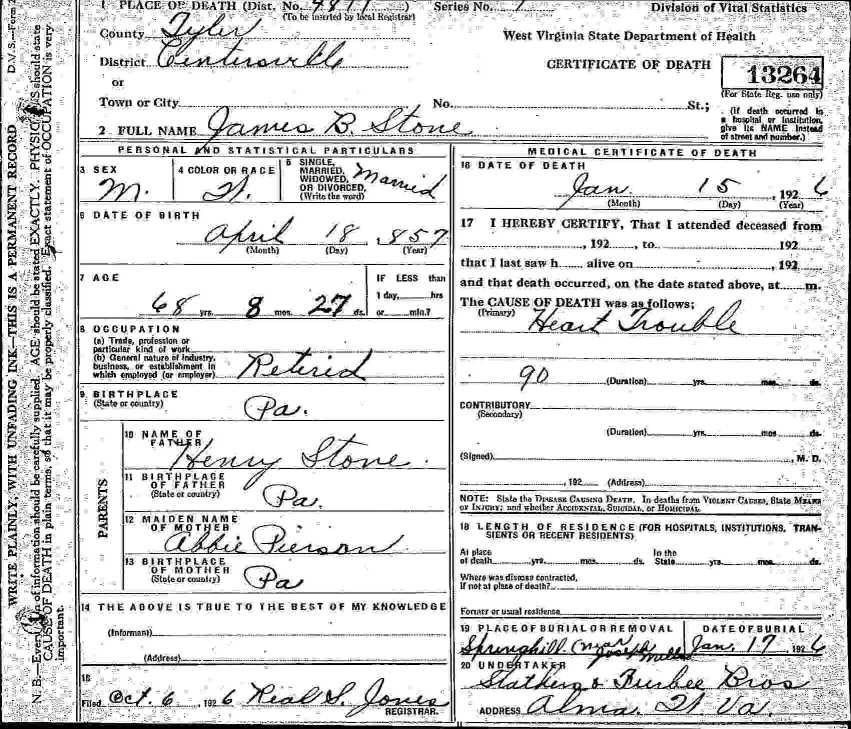 1 PLACE OF DEATH (Dist. No. 4811) Series No.
Division of Vital Statistics
(To be inserted by local Registrar)
County Tyler
West Virginia State Department of Health
District Centersville
CERTIFICATE OF DEATH
13264
(For State Reg. use only)
or
Town or City No. St.;
(If death occurred in a hospital or institution, give its NAME instead of street and number.)
2 FULL NAME James B. Stone
PERSONAL AND STATISTICAL PARTICULARS
3 SEX M.
4 COLOR OR RACE W.
5 SINGLE, MARRIED, WIDOWED, OR DIVORCED. (Write the word) Married
6 DATE OF BIRTH
April 18, 857
(Month) (Day) (Year)
7 AGE
IF LESS than
1 day, hrs
68 yrs. 8 mos. 27 ds. or min.?
8 OCCUPATION
(a) Trade, profession or
particular kind of work
(b) General nature of industry,
business, or establishment in
which employed (or employer) Retirid
9 BIRTHPLACE
(State or country) Pa.
PARENTS
10 NAME OF
FATHER Henry Stone.
11 BIRTHPLACE
OF FATHER
(State or country) Pa.
12 MAIDEN NAME
OF MOTHER
Abbie Pierson
13 BIRTHPLACE
OF MOTHER
(State or country) Pa
14 THE ABOVE IS TRUE TO THE BEST OF MY KNOWLEDGE
(Informant)
(Address)
15
Filed Oct. 6, 1926 Real S. Jones
REGISTRAR.
MEDICAL CERTIFICATE OF DEATH
16 DATE OF DEATH
Jan. 15, 1926
(Month) (Day) (Year)
17 I HEREBY CERTIFY, That I attended deceased from
, 192 , to 192
that I last saw h alive on , 192
and that death occurred, on the date stated above, at m.
The CAUSE OF DEATH was as follows;
(Primary) Heart Trouble
90 (Duration) yrs. mos. ds.
CONTRIBUTORY
(Secondary)
(Duration) yrs. mos ds.
(Signed) , M. D.
, 192 (Address)
NOTE: State the DISEASE CAUSING DEATH. In deaths from VIOLENT CAUSES, State MEANS
OF INJURY; and whether ACCIDENTAL, SUICIDAL, or HOMICIDAL.
18 LENGTH OF RESIDENCE (FOR HOSPITALS, INSTITUTIONS, TRAN-
SIENTS OR RECENT RESIDENTS)
At place In the
of death yrs. mos. ds. State yrs. mos. ds.
Where was disease contracted,
if not at place of death?
Former or usual residence
19 PLACE OF BURIAL OR REMOVAL
DATE OF BURIAL
Springhill Joseph Mills
Jan. 17, 1926
20 UNDERTAKER
Stathers & Furbee Bros
ADDRESS Alma. W. Va.
D.V.S.—Form
WRITE PLAINLY, WITH UNFADING INK—THIS IS A PERMANENT RECORD
N. B.—Every of information should be carefully supplied. AGE should be stated EXACTLY. PHYSICIANS should state
CAUSE OF DEATH in plain terms, so that it may be properly classified. Exact statement of OCCUPATION is very
important.